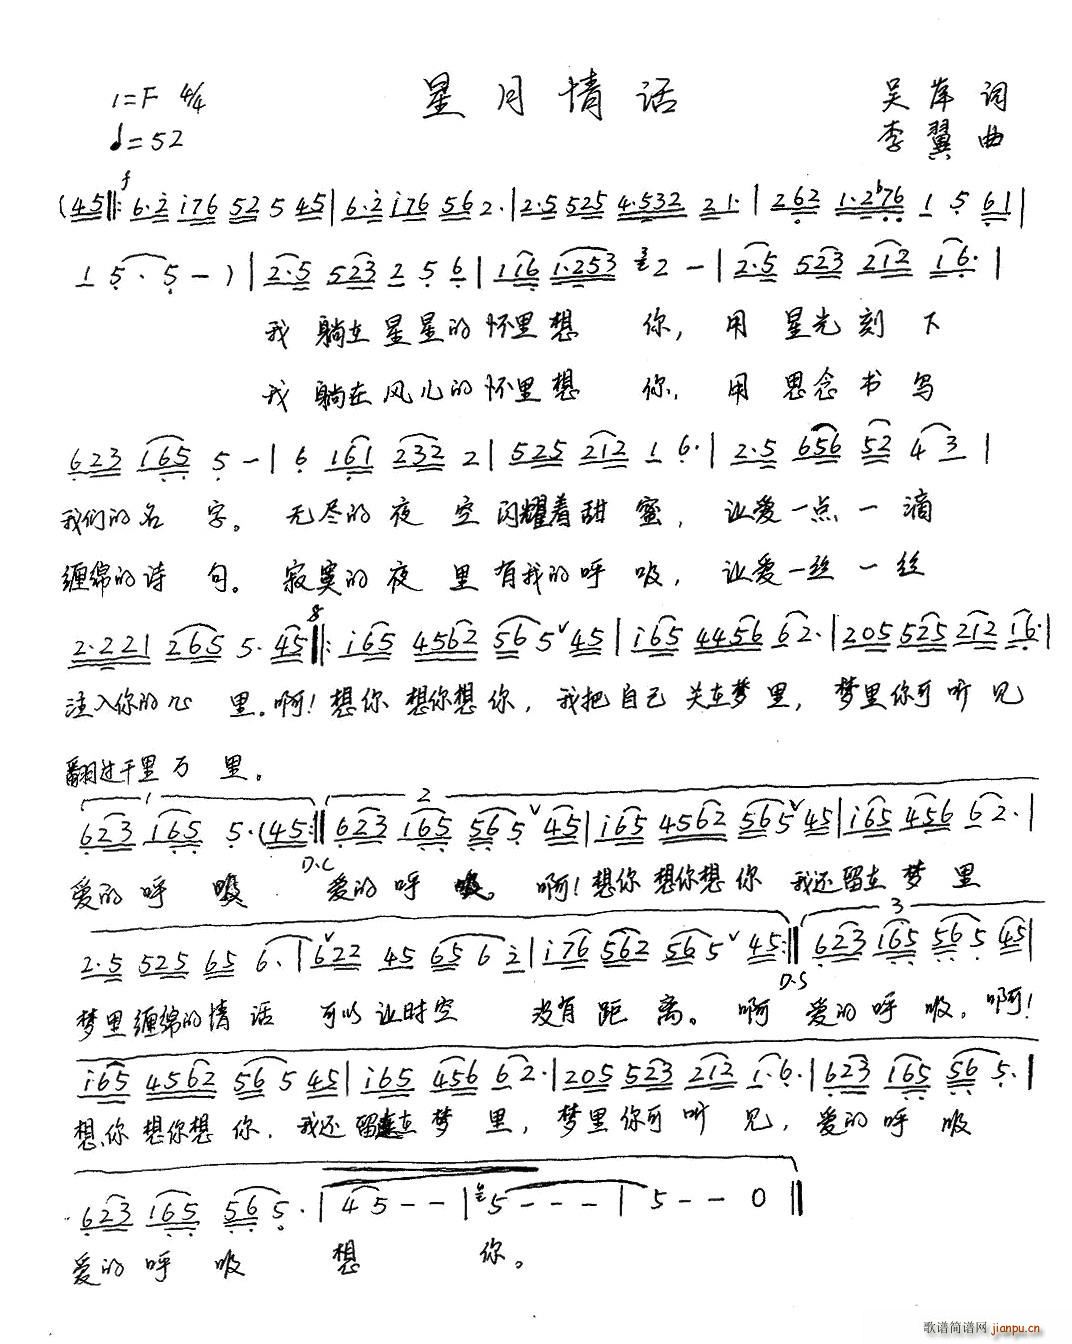 星月情话
1=F 4/4
吴岸 词
♩=52
李翼 曲
f
(45‖:6·2 i76 52 5 45|6·2 i76 56 2·|2·5 525 4·532 21·|262 1·2♭76 1 5 61|
1 5·5-)|2·5 523 2 5 6|116 1·253 2-|2·5 523 212 16·|
我躺在星星的怀里想你，用星光刻下
我躺在风儿的怀里想你，用思念书写
623 165 5-|6 161 232 2|525 212 1 6·|2·5 656 52 43|
我们的名字。无尽的夜空闪耀着甜蜜，让爱一点一滴
缠绵的诗句。寂寞的夜里有我的呼吸，让爱一丝一丝
2·221 265 5·45‖:i65 4562 565ᵛ45|i65 4456 62·|205 525 212 16·|
注入你的心里。啊！想你想你想你，我把自己关在梦里，梦里你可听见
翻过千里万里。
1 2
623 165 5·(45:‖623 165 565ᵛ45|i65 4562 565ᵛ45|i65 456 62·|
D.C
爱的呼吸 爱的呼吸。啊！想你想你想你 我还留在梦里
3
2·5 525 65 6·|6ᵛ22 45 65 62|i76 562 565ᵛ45:‖623 165 565 45|
D.S
梦里缠绵的情话 可以让时空 没有距离。啊 爱的呼吸，啊！
i65 4562 565 45|i65 456 62·|205 523 212 1·6·|623 165 565·|
想你想你想你，我还留在梦里，梦里你可听见，爱的呼吸
623 165 565·|45--|5---|5--0‖
爱的呼吸 想 你。
歌谱简谱网
jianpu.cn